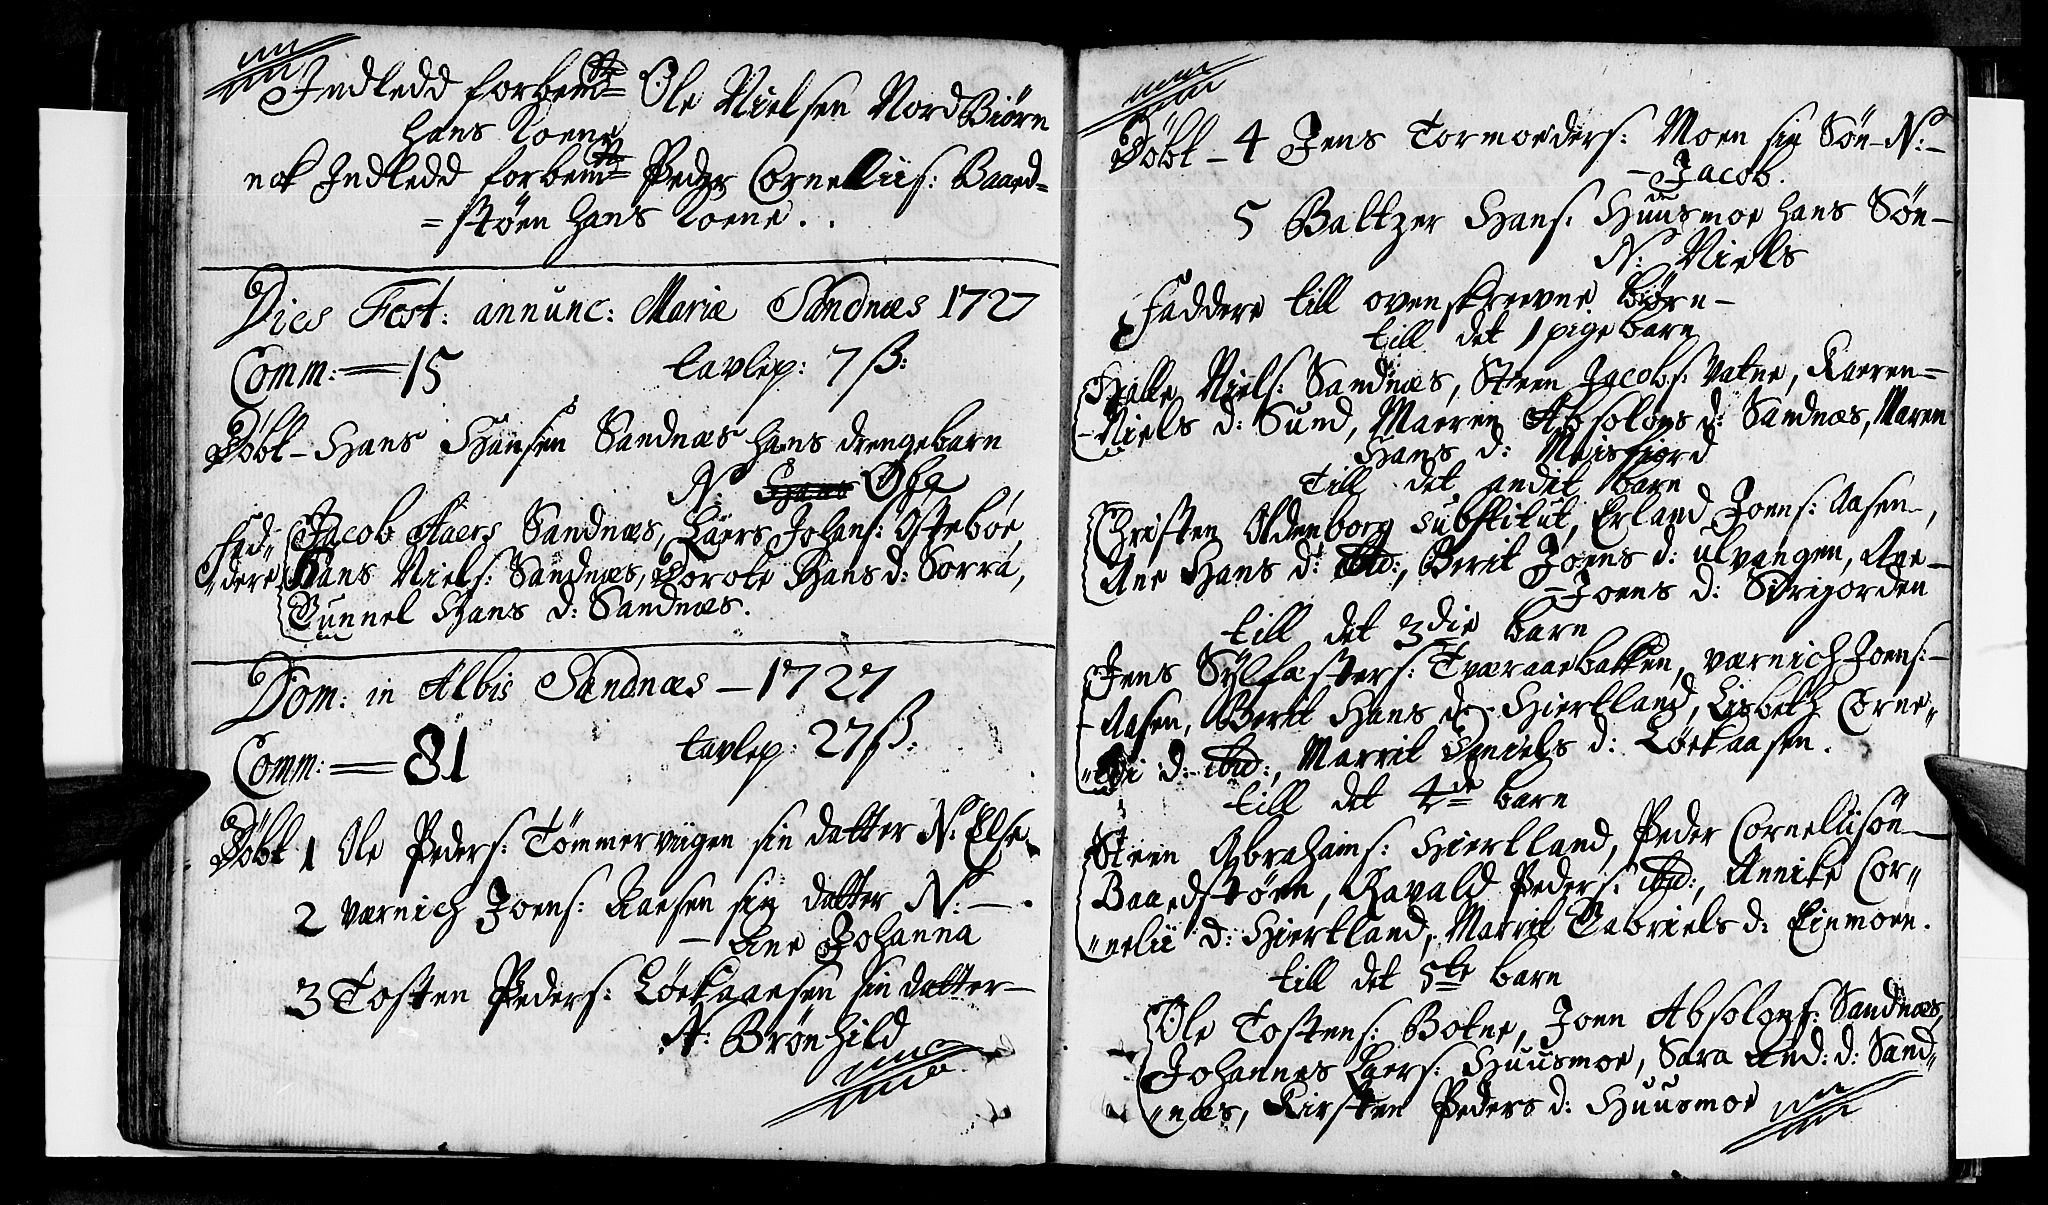 Indledd forbem:te Ole Nielsen Nord Biørn
hans Koene
nok Indledd forbem:te Peder Corneliis: Baaed=
=støen hans Koene . .
Dies Fest: annunc: Mariæ Sandnæs 1727
Comm: = 15 tavlep: 7 ß:
Døbt – Hans Hansen Sandnæs hans drengebarn
N: Hans Ole
Jacob Aaers Sandnæs, Laers Johans: Ostebøe,
Fad„
„dere Hans Niels: Sandnæs, Dorote Hans d: Sorra,
Gunnel Hans d: Sandnæs.
Dom: in Albis Sandnæs – 1727
Comm: = 81 tavlep: 27 ß:
Døbt 1 Ole Peders: Tömmerviigen sin datter N: Else
2 Værnich Joens: Aaesen sin datter N: –
– Ane Johanna
3 Tosten Peders: Löekaaesen sin datter –
N: Brönhild
Døbt – 4 Jens Tormoeders: Moen sin Søn – N: –
– Jacob.
5 Baltzer Hans: Huusmoe hans Søn –
N: Niels
Faddere till ovenskrevne børn –
till det 1 pigebarn
Halle Niels: Sandnæs, Steen Jacobs: Vatne, Kaeren=
– Niels d: Sund, Maeren Absolons d: Sandnæs, Maren
Hans d: Meisfiord
Till det andit barn
Christen Oldenborg substitut, Erland Joens: Aasen,
Ane Hans d: ibid:, Berit Joens d: ulvangen, Ane –
= Joens d: Sörrgorden
till det 3die barn
Jens Sylfæsters: Tværaaebakken, Værnich Joens: –
– Aasen, Berit Hans d: Hiertland, Lisbeth Corne„
„lii d: ibid:, Marrit d: Löekaasen.
till det 4de barn
Steen Abrahams: Hiertland, Peder Corneliisön
Baaedstøen, Havald Peders: ibid:, Annike Cor„
„nelii d: Hiertland, Marrit Gabriels d: Einmoen.
till det 5te barn
Ole Tostens: Botne, Joen Absolons: Sandnæs,
Johannes Laers: Huusmoe, Sara And: d: Sand„
„næs, Kirsten Peders d: Huusmoe